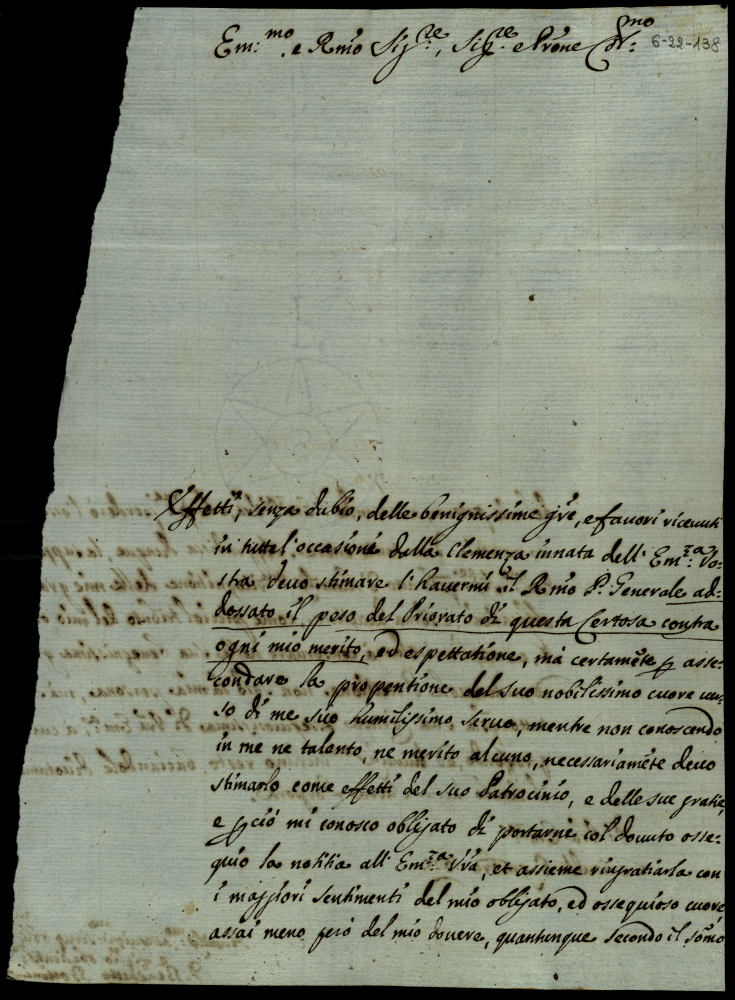 Em:mo e Rmo Sig:re, Sig:re e Prone Col:mo
6-22-138
Effetti, senza dubio, delle benignissime gre, e favori ricevuti
in tutte l'occasioni dalla Clemenza innata dell' Em:za Vo-
stra devo stimare l'havermi il Rmo P. Generale ad-
dossato il peso del Priorato di questa Certosa contra
ogni mio merito, ed espettatione, mà certamēte p asse-
condare la propentione del suo nobilissimo cuore ver-
so di me suo humilissimo servo, mentre non conoscendo
in me ne talento, ne merito alcuno, necessariamēte devo
stimarlo come effetti del suo Patrocinio, e delle sue gratie,
e pciò mi conosco obligato di portarne col dovuto osse-
quio la notitia all' Em:za Vra, et assieme ringratiarla con
i maggiori sentimenti del mio obligato, ed ossequioso cuore,
assai meno però del mio dovere, quantunque secondo il somo